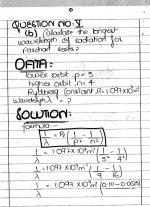 QUESTION NO: V
(b) Calculate the longest
wavelength of radiation for
Paschen series?
DATA:
lower orbit p = 3
higher orbit n = 4
Rydberg constant R = 1.097×10⁷m⁻¹
wavelength λ = ?
SOLUTION:
formula:-
1/λ = R(1/p² - 1/n²)
1/λ = 1.097×10⁷m⁻¹(1/3² - 1/4²)
1/λ = 1.097×10⁷m⁻¹(1/9 - 1/16)
1/λ = 1.097×10⁷m⁻¹(0.111-0.0625)